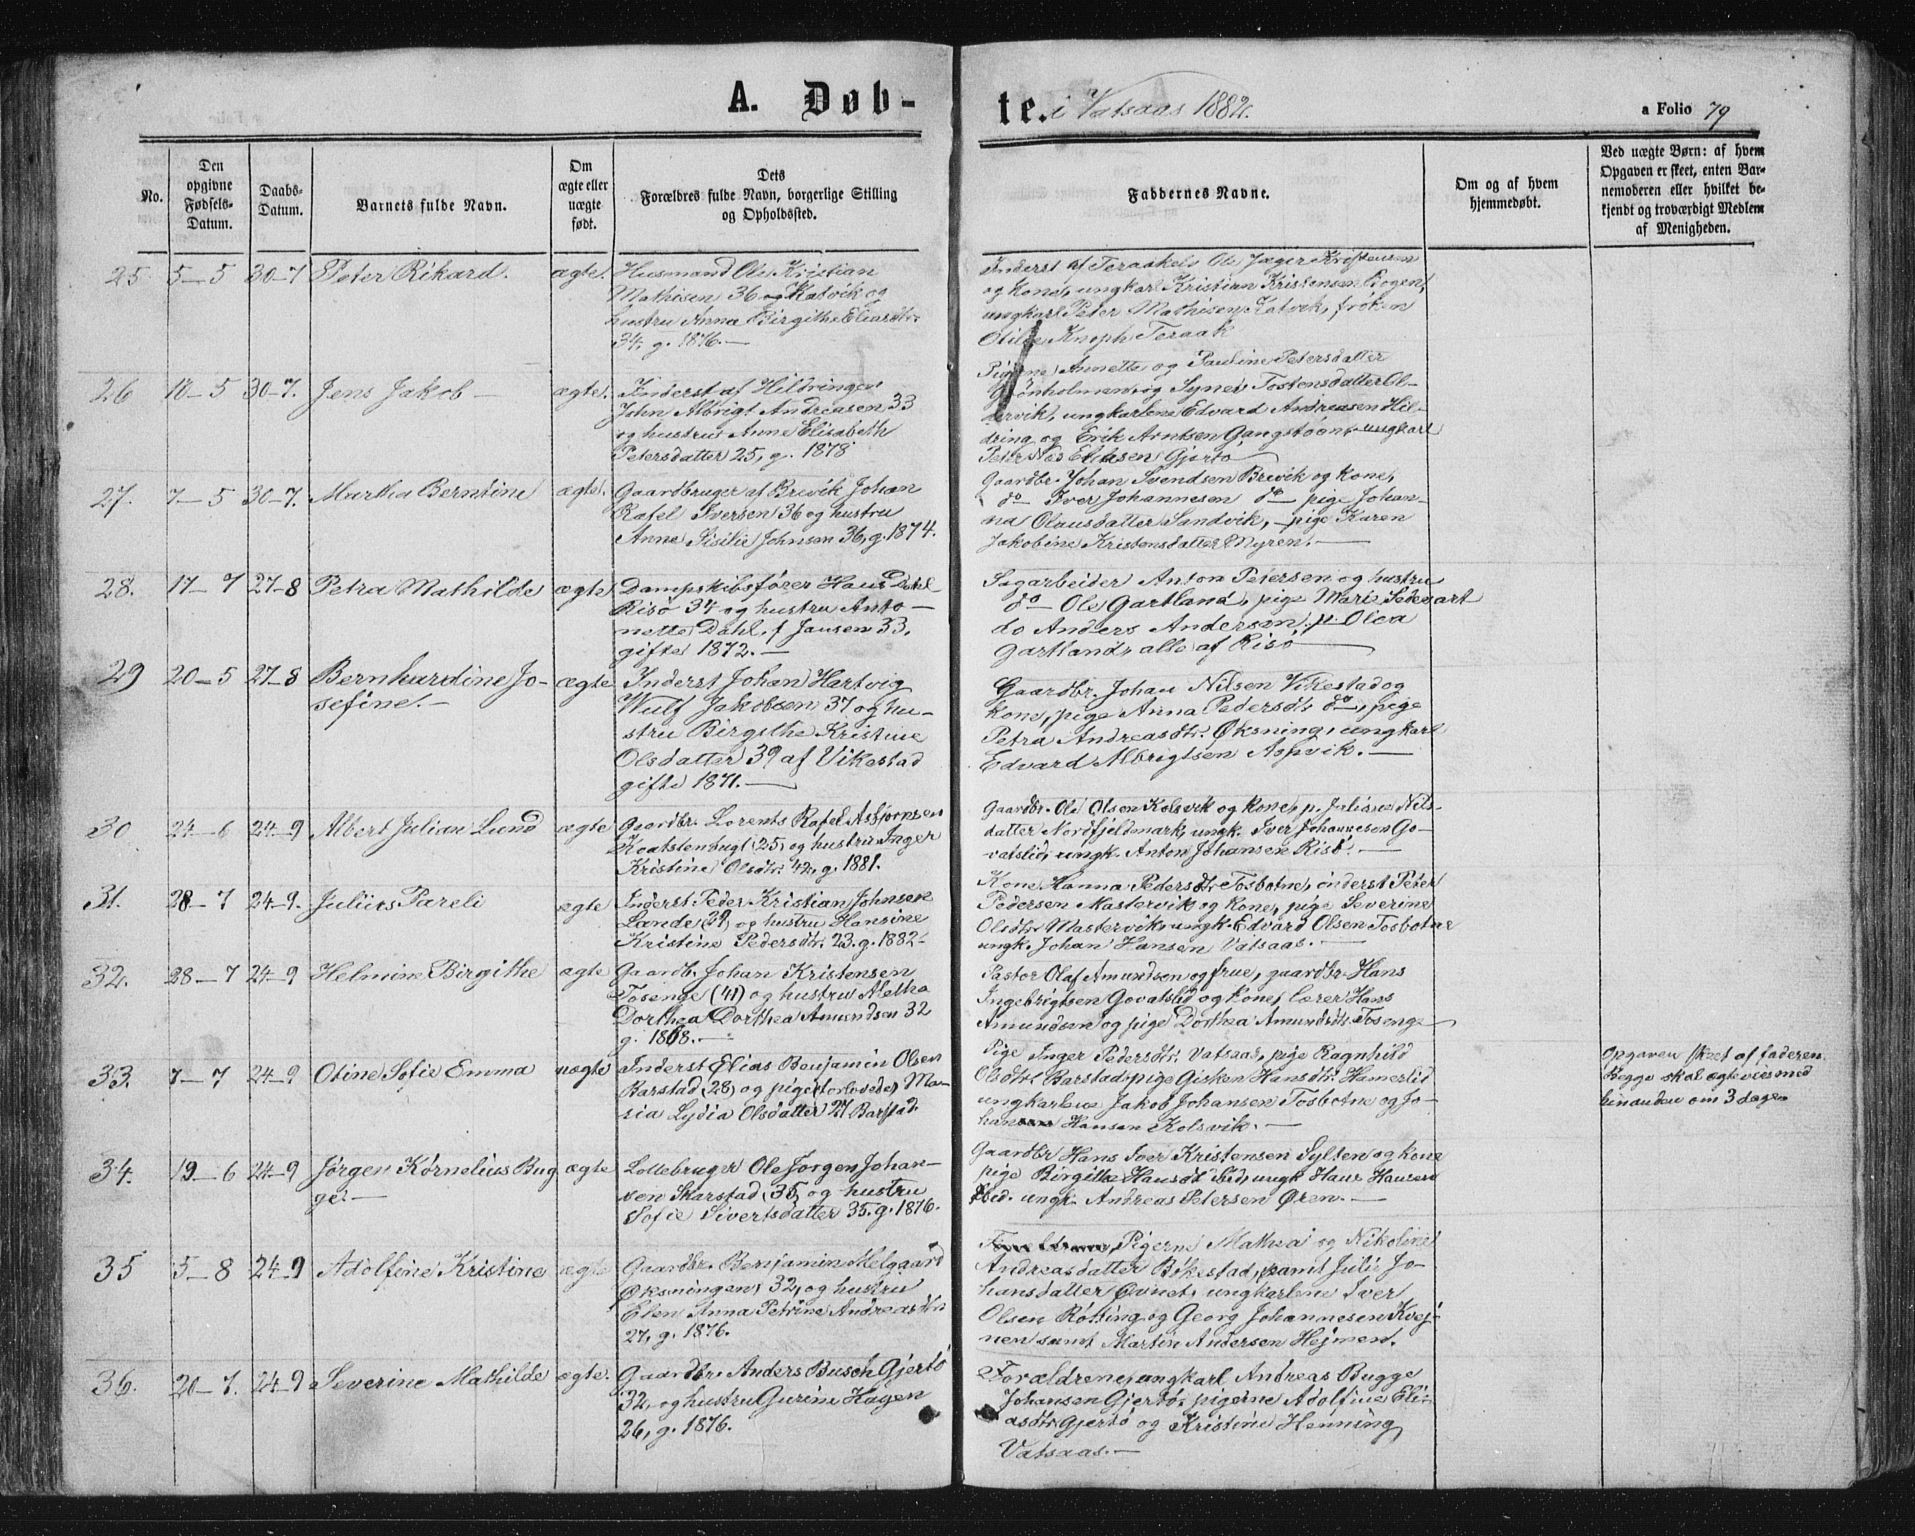 A. Døb-
te. i Vatsaas 1882.
a Folio 79
No.
Den opgivne Fødsels-Datum.
Daabs-Datum.
Barnets fulde Navn.
Om ægte eller uægte født.
Dets Forældres fulde Navn, borgerlige Stilling og Opholdssted.
Faddernes Navne.
Om og af hvem hjemmedøbt.
Ved uægte Børn: af hvem Opgaven er skeet, enten Barnemoderen eller hvilket bekjendt og troværdigt Medlem af Menigheden.
25. 5-5 30-7 Peter Rikard. ægte.
Husmand Ole Kristian
Mathisen 36 og Katvik og
hustru Anna Birgithe Eliasdtr.
34. g. 1876.—
Inderst af Teraakels Ole Jæger Kristensen
og Kone, ungkarl Kristian Kristensen
ungkarl Peter Mathisen Katvik, frøken
Otilie Knoph Teraak
26 10-5 30-7. Jens Jakob— ægte.
Inderst af Hildringen
John Albrigt Andreasen 33
og hustru Anne Elisabeth
Petersdatter 25, g. 1878
Pigerne Annette og Pauline Petersdatter
Grønholmen, og Synev Tostensdatter
ungkarlene Edvard Andreasen Hil-
dring og Erik Arntsen ungkarl
Peter Eliasen Gjertø
27. 7-5 30-7. Martha Berntine ægte.
Gaardbruger af Brevik Johan
Rafel Iversen 36 og hustru
Anne Sisilie Johnsen 36, g. 1874.
Gaardbr. Johan Svendsen Brevik og Kone,
do Iver Johannesen do pige Johan-
na Olausdatter Sandvik, pige Karen
Jakobine Kristensdatter Myren.—
28. 17-7 27-8 Petra Mathilde ægte
Dampskibsfører Hans
Risø 34 og hustru Anto-
nette Dahl f. Jansen 33.
gifte 1872.—
Sagarbeider Anton Petersen og hustru
do Ole Gartland, pige Marie
do Anders Andersen, p. Olea
Gartland, alle af Risø
29 20-5 27-8 Bernhardine Jo-
sefine.— ægte
Inderst Johan Hartvig
Wulf Jakobsen 37 og hu-
stru Birgithe Kristine
Olsdatter 39 af Vikestad
gifte 1871.—
Gaardbr. Johan Nilsen Vikestad og
kone, pige Anna Pedersdt. do, pige
Petra Andreasdtr. Øksning, ungkarl
Edvard Albrigtsen Aspvik.—
30 24-6 24-9 Albert Julian Lund ægte
Gaardbr. Lorents Rafel Asbjørnsen
(25) og hustru Inger
Kristine Olsdtr. 42, g. 1881.
Gaardbr. Ole Olsen Kolsvik og kone, p. Juliane Nils-
datter Nordfjeldmark, ungk. Iver Johannesen Go-
vatslid, ungk. Anton Johansen Risø.—
31. 28-7 24-9. Julius Pareli ægte
Inderst Peder Kristian Johnsen
Lande (29) og hustru Hansine
Kristine Pedersdtr. 23. g. 1882.
Kone Hanna Pedersdt. Tosbotne, inderst Peter
Pedersen Mastervik og kone, pige Severine
Olsdtr. Mastervik, ungk. Edvard Olsen Tosbotne
ungk. Johan Hansen Vatsaas.—
32. 28-7 24-9 Helmine Birgithe ægte
Gaardb. Johan Kristensen
Tosenge (41) og hustru Aletha
Dorthea Dorthea Amundsen 32
g. 1868.—
Pastor Olaf Amundsen og frue, gaardbr. Hans
Ingebrigtsen Govatslid og Kone, lærer Hans
Amundsen og pige Dorthea Amundsdt. Tosenge
33. 7-7 24-9 Otine Sofie Emma uægte
Inderst Elias Benjamin Olsen
Barstad (28) og pige (forlovede) Ma-
sia Lydia Olsdatter 27 Barstad.
Pige Inger Pedersdtr. Vatsaas, pige Ragnhild
Olsdtr. Barstad, pige Gisken Hansdtr. Hamerlid
ungkarlene Jakob Johansen Tosbotne og Jo-
han Hansen Kolsvik.—
Opgaven skeet af faderen.
Begge skal ægtevies med
hinanden om 3 dage
34. 19-6 24-9 Jørgen Kornelius Bug-
ge.— ægte
Lottebruger Ole Jørgen Johan-
sen Skarstad (35) og hustru
Sofie Sivertsdatter 35. g. 1876.
Gaardbr Hans Iver Kristensen Sylten og kone
pige Birgitte Hansdt. ibid, ungk Hans Hansen
ibid. ungk. Andreas Petersen Øren.—
35 5-8 24-9 Adolfine Kristine ægte
Gaardbr. Benjamin Melgaard
Øksningen, 32, og hustru
Elen Anna Petrine Andreasdtr.
27, g. 1876.
Pigerne Mathea og Nikoline
Andreasdatter Bøkestad, samt Julie Jo-
hansdatter Øvnet, ungkarlene Iver
Olsen Røtting og Georg Johannesen Kvej-
nen samt Martin Andersen Hejmen.
36. 20-7. 24-9 Severine Mathilde ægte.
Gaardbr. Anders Busch Gjertø
32, og hustru Gurine Hagen
26, g. 1876.
Forældrene, ungkarl Andreas Bugge
Johansen Gjertø, pigerne Adolfine Eli-
asdtr. Gjertø og Kristine Henning
Vatsaas.—